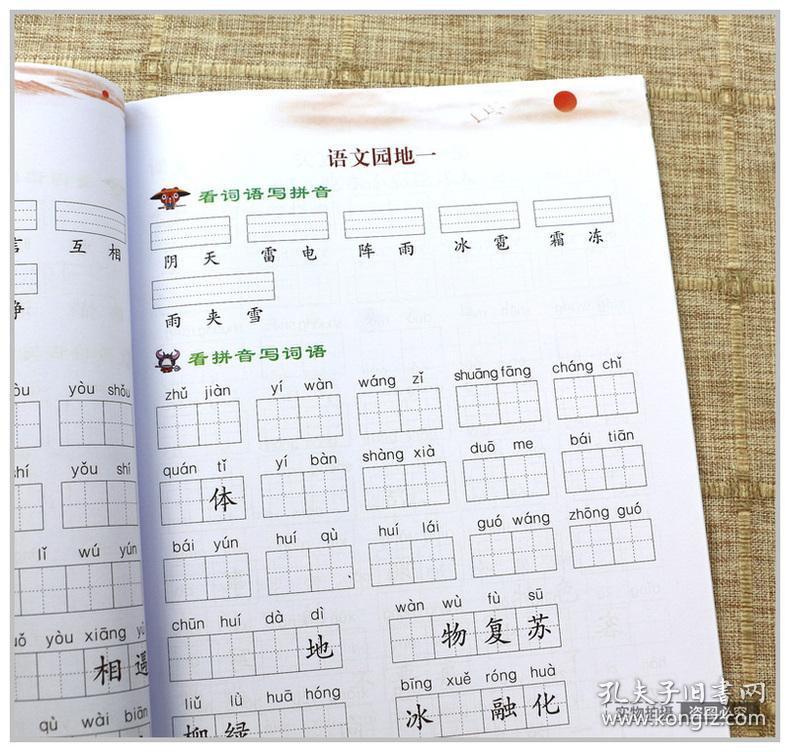 语文园地一
看词语写拼音
阴 天 雷 电 阵 雨 冰 雹 霜 冻
雨 夹 雪
看拼音写词语
zhǔ jiàn yí wàn wáng zǐ shuāng fāng cháng chǐ
quán tǐ yí bàn shàng xià duō me bái tiān
体
bái yún huí qù huí lái guó wáng zhōng guó
chūn huí dà dì wàn wù fù sū
地 物 复 苏
liǔ lǜ huā hóng bīng xuě róng huà
柳 绿 冰 融 化
互 相
yòu shǒu
yǒu shí
lǐ wú yún
yòu xiāng
相
qù wài biān
孔夫子旧书网
实物拍摄 盗图必究
www.kongfz.com